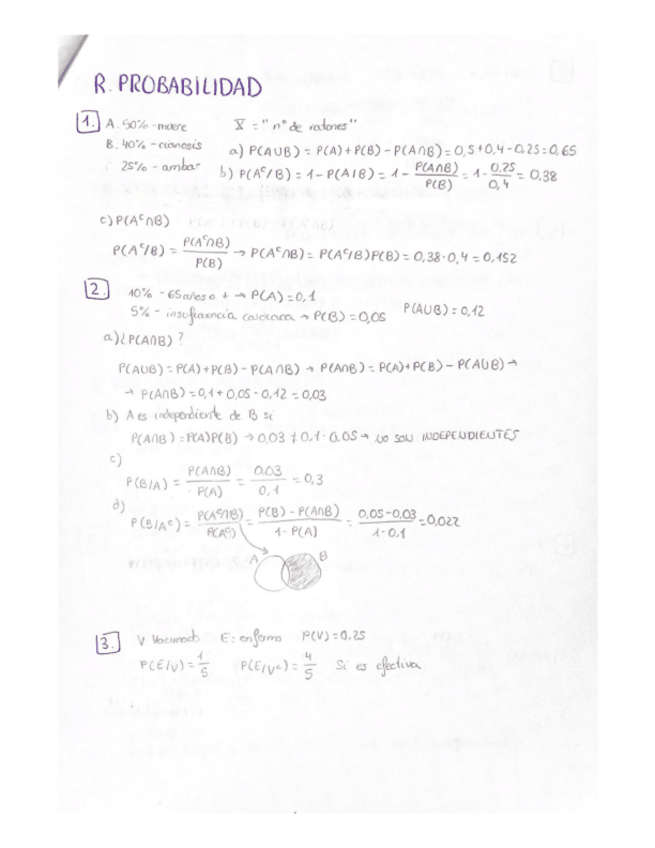 R. PROBABILIDAD
1. A. 50% - muere X = "nº de ratones"
B. 40% - cianosis a) P(A∪B) = P(A) + P(B) - P(A∩B) = 0,5 + 0,4 - 0.25 = 0,65
25% - ambas b) P(Aᶜ/B) = 1 - P(A/B) = 1 - P(A∩B)/P(B) = 1 - 0.25/0,4 = 0,38
c) P(Aᶜ∩B)
P(Aᶜ/B) = P(Aᶜ∩B)/P(B) → P(Aᶜ∩B) = P(Aᶜ/B)P(B) = 0,38·0,4 = 0,152
2. 10% - 65 años o + → P(A) = 0,1
5% - insuficiencia cardiaca → P(B) = 0,05 P(A∪B) = 0,12
a) ¿P(A∩B)?
P(A∪B) = P(A) + P(B) - P(A∩B) → P(A∩B) = P(A) + P(B) - P(A∪B) →
→ P(A∩B) = 0,1 + 0,05 - 0,12 = 0,03
b) A es independiente de B si
P(A∩B) = P(A)P(B) → 0,03 ≠ 0,1·0,05 → NO SON INDEPENDIENTES
c)
P(B/A) = P(A∩B)/P(A) = 0,03/0,1 = 0,3
d)
P(B/Aᶜ) = P(Aᶜ∩B)/P(Aᶜ) = P(B) - P(A∩B)/1 - P(A) = 0,05-0,03/1-0,1 = 0,022
A B
3. V vacunado E: enfermo P(V) = 0.25
P(E/V) = 1/5 P(E/Vᶜ) = 4/5 Si es efectiva